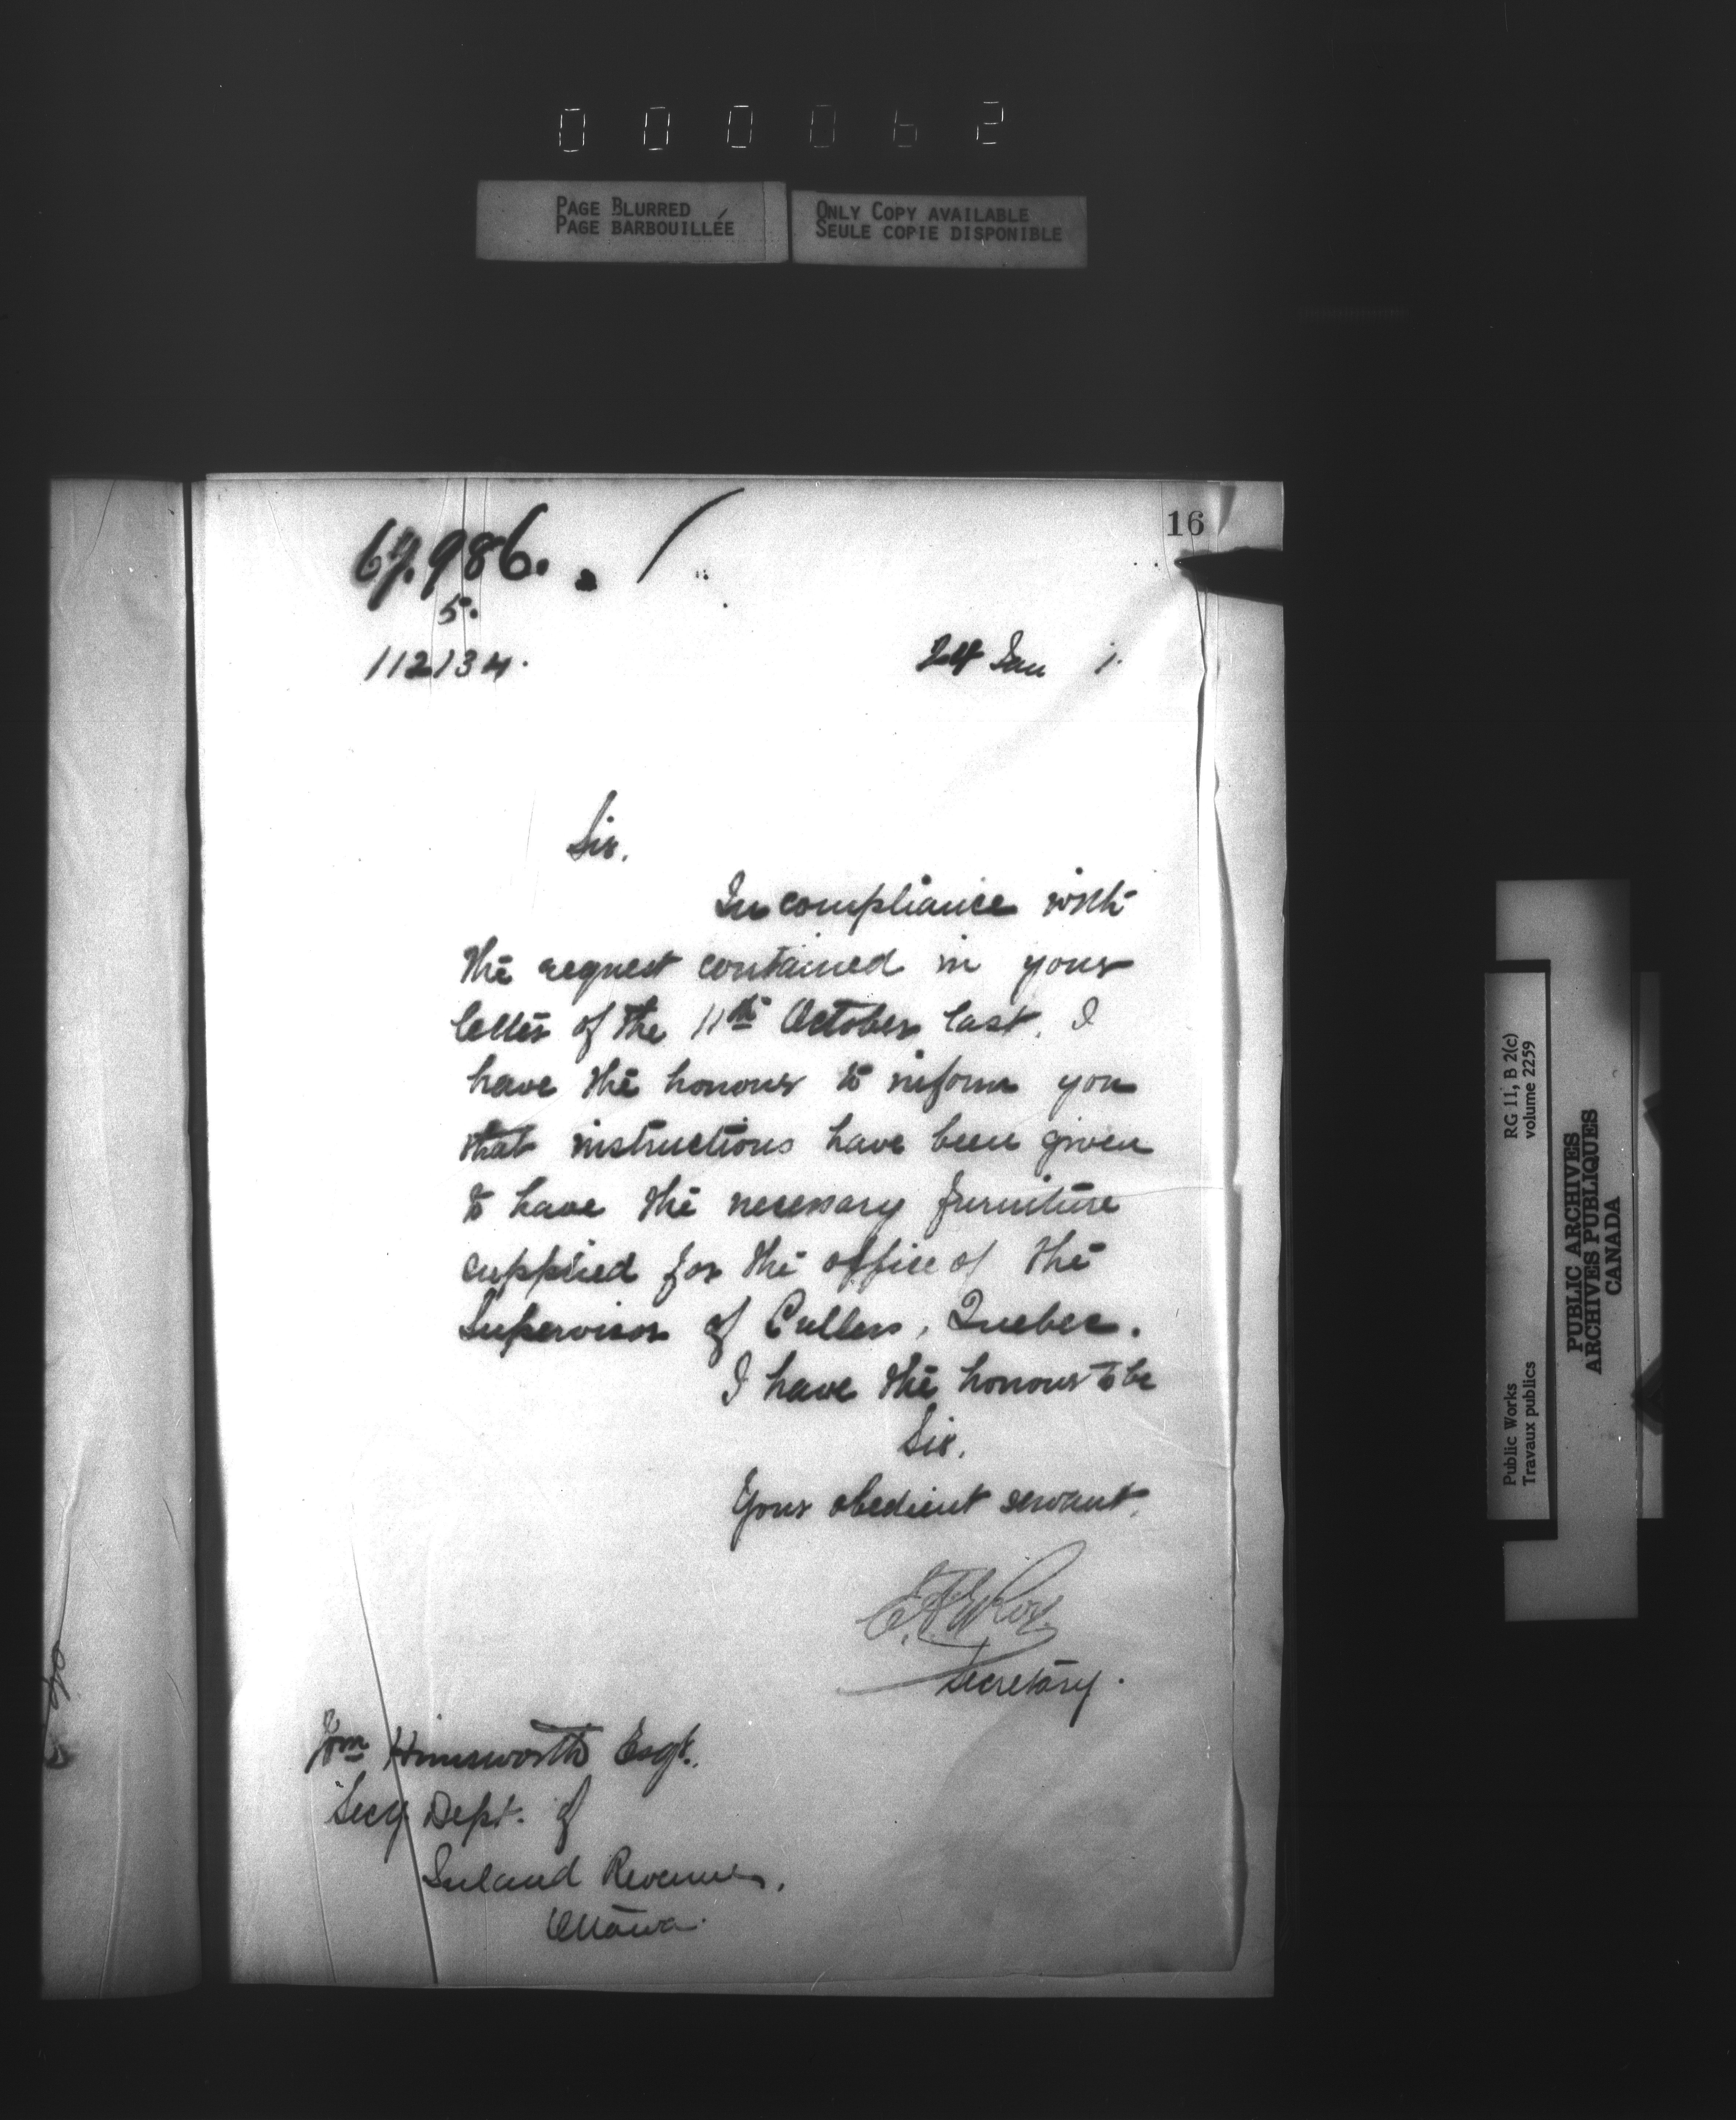 000062
PAGE BLURRED
PAGE BARBOUILLÉE
ONLY COPY AVAILABLE
SEULE COPIE DISPONIBLE
16
67.986.
5.
112134.
24 Jan 1.
Sir,
In compliance with
the request contained in your
letter of the 11th October last, I
have the honour to inform you
that instructions have been given
to have the necessary furniture
supplied for the office of the
Supervisor of Cullers, Quebec.
I have the honour to be
Sir,
Your obedient servant,
Secretary.
Wm Himsworth Esqr.
Secy Dept. of
Inland Revenue,
Ottawa.
Public Works
Travaux publics
RG 11, B 2(c)
volume 2259
PUBLIC ARCHIVES
ARCHIVES PUBLIQUES
CANADA